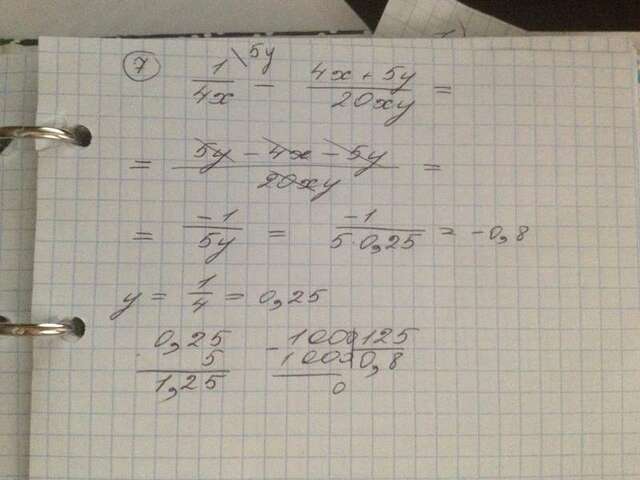 7
1/4x \5y - 4x + 5y/20xy =
= 5y - 4x - 5y/20xy =
= -1/5y = -1/5·0,25 = -0,8
y = 1/4 = 0,25
0,25 - 1000 125
5 1000 0,8
1,25 0